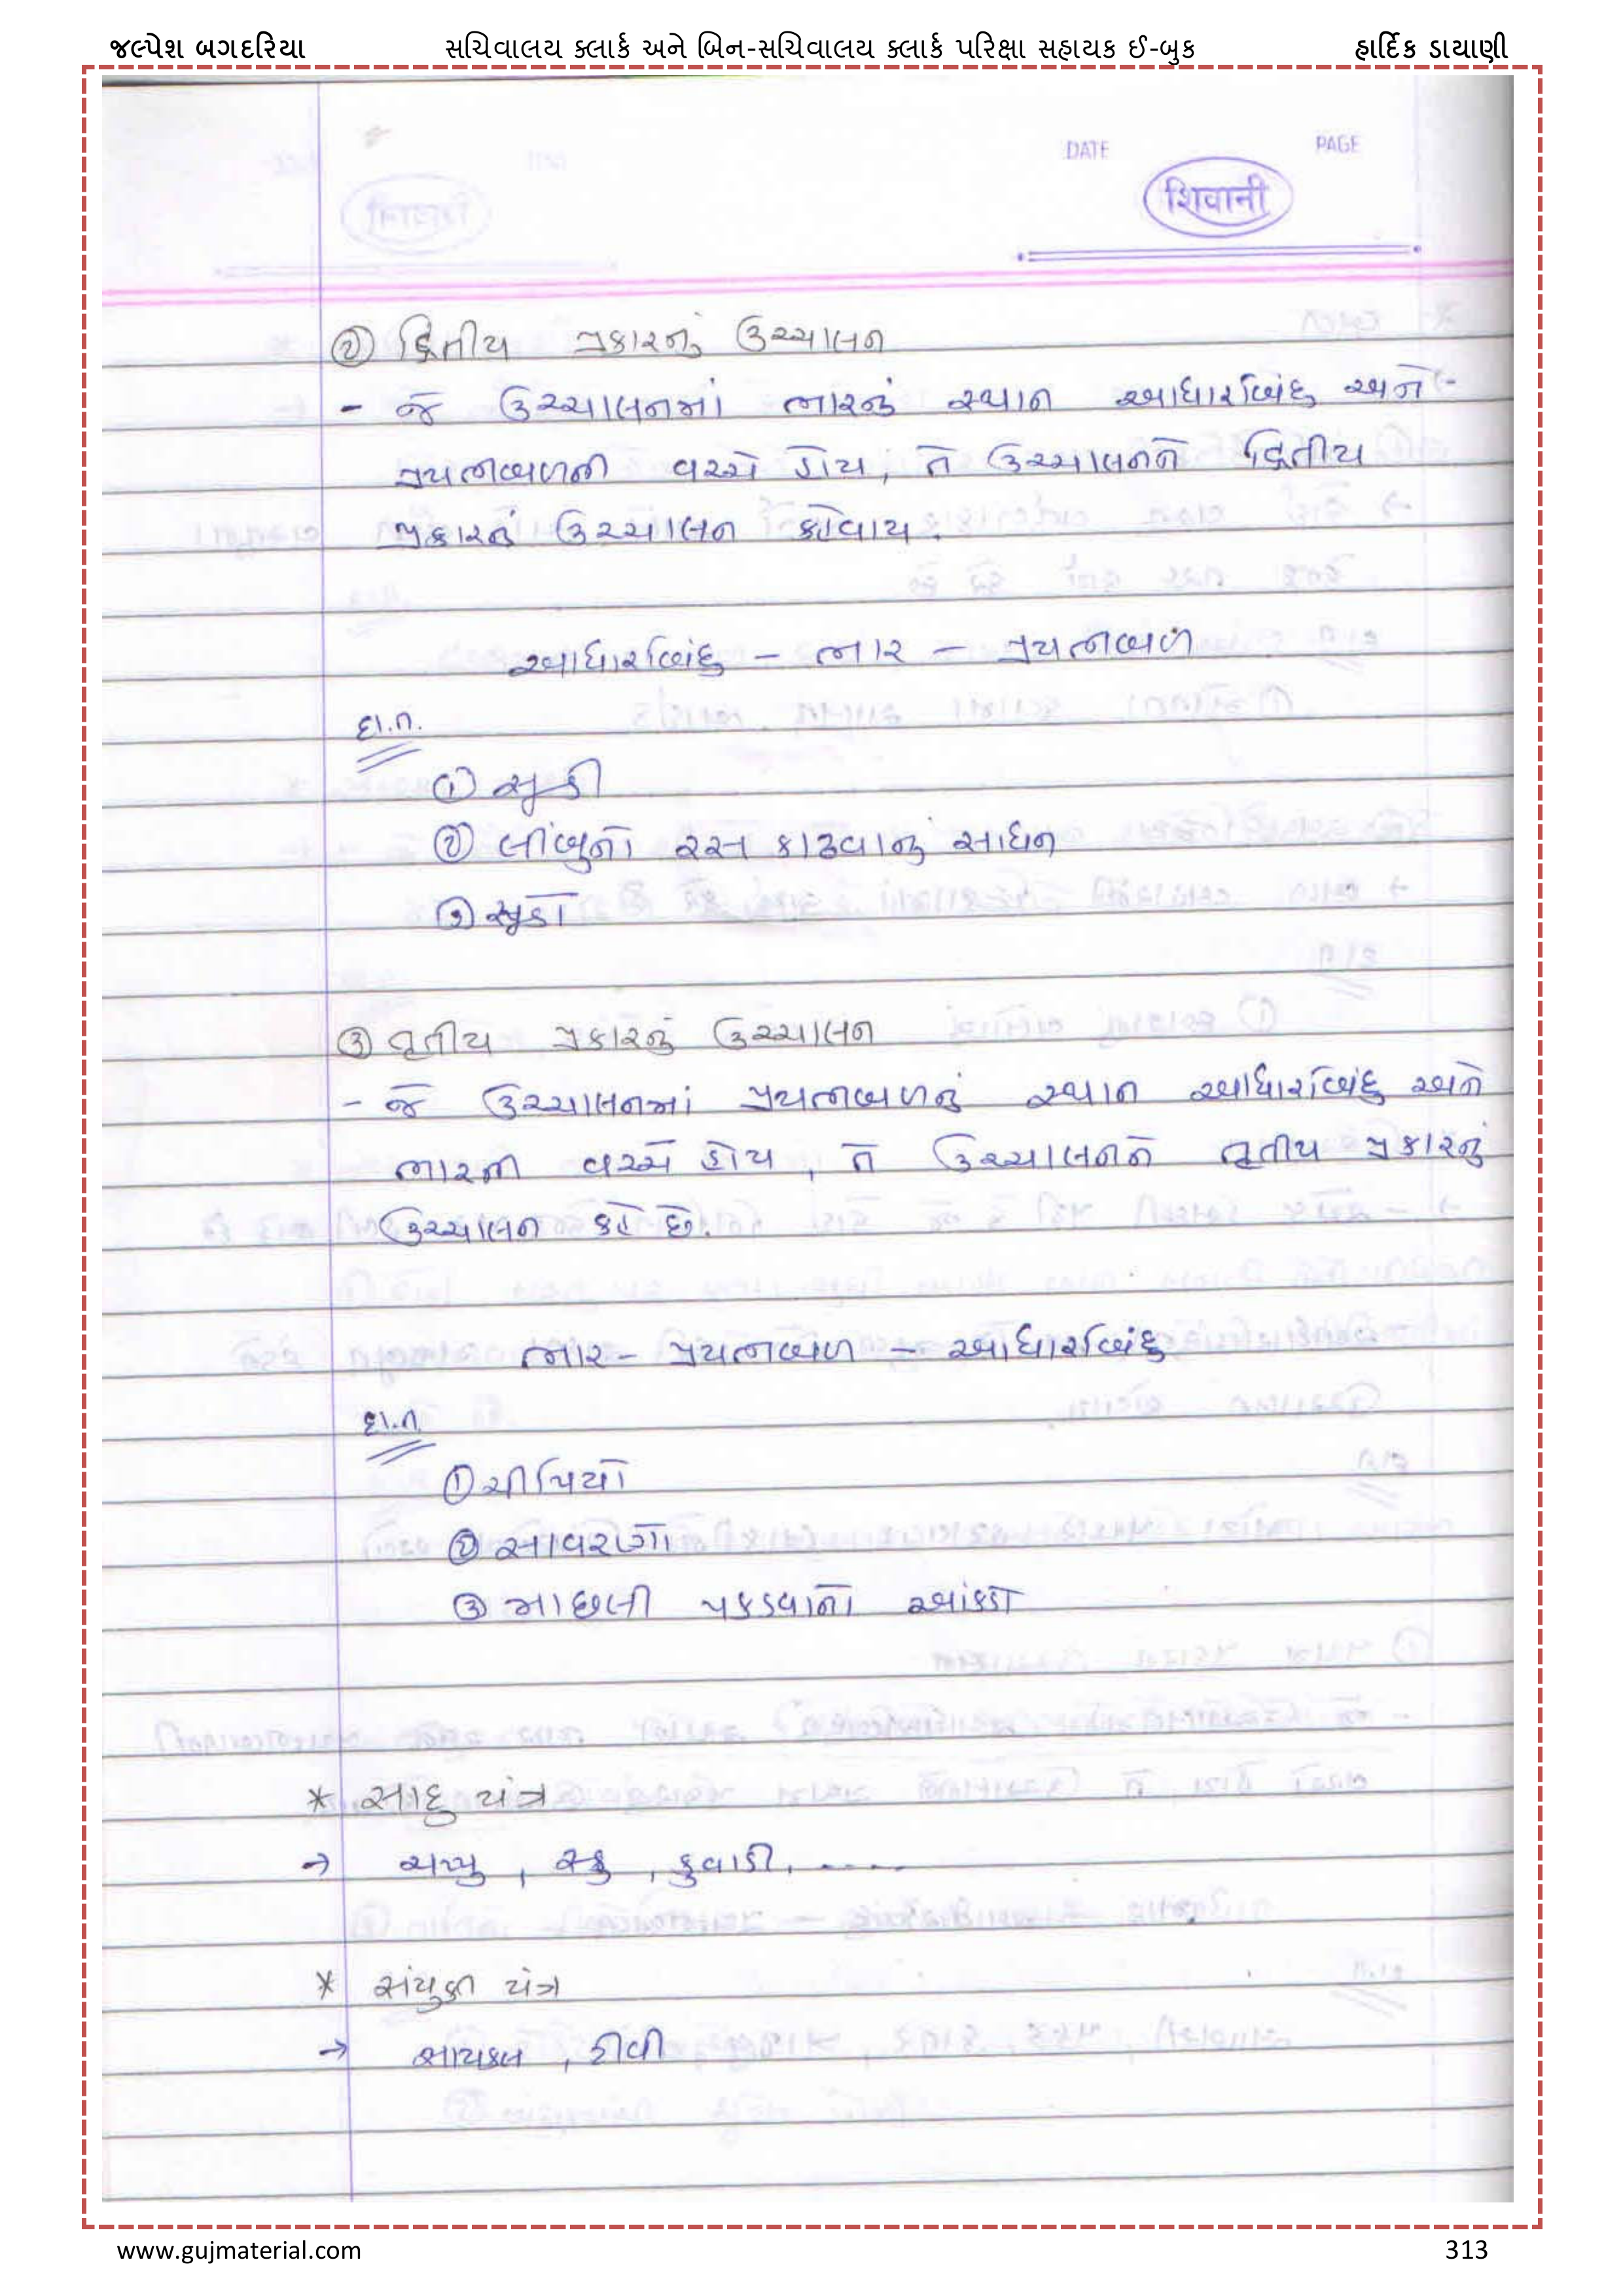 જલ્પેશ બગદરિયા સચિવાલય ક્લાર્ક અને બિન-સચિવાલય ક્લાર્ક પરિક્ષા સહાયક ઈ-બુક હાર્દિક ડાયાણી
DATE PAGE
शिवानी
② દ્વિતીય પ્રકારનું ઉચ્ચાલન
- જે ઉચ્ચાલનમાં ભારનું સ્થાન આધારબિંદુ અને
પ્રયત્નબળની વચ્ચે હોય, તે ઉચ્ચાલનને દ્વિતીય
પ્રકારનું ઉચ્ચાલન કહેવાય.
આધારબિંદુ - ભાર - પ્રયત્નબળ
દા.ત.
① સૂડી
② લીંબુનો રસ કાઢવાનું સાધન
③ સૂડો
③ તૃતીય પ્રકારનું ઉચ્ચાલન
- જે ઉચ્ચાલનમાં પ્રયત્નબળનું સ્થાન આધારબિંદુ અને
ભારની વચ્ચે હોય, તે ઉચ્ચાલનને તૃતીય પ્રકારનું
ઉચ્ચાલન કહે છે.
ભાર - પ્રયત્નબળ - આધારબિંદુ
દા.ત.
① ચીપિયો
② સાવરણો
③ માછલી પકડવાનો આંકડો
* સાદુ યંત્ર
→ ચપ્પુ, સ્ક્રુ, કુવાડી, .....
* સંયુક્ત યંત્ર
→ સાયકલ, ટીવી
www.gujmaterial.com 313